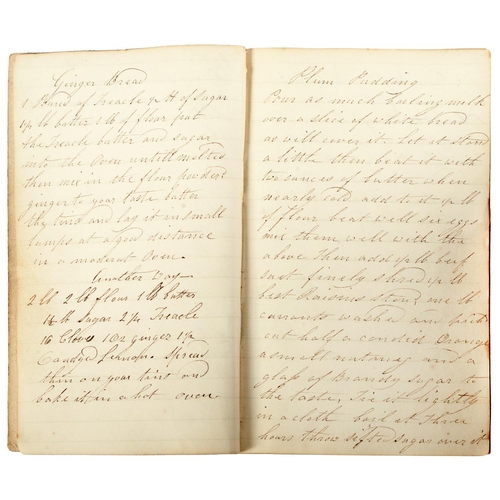 Ginger Bread
1 Pound of Treacle ¼ lb of Sugar
1½ lb butter 2 lb of flour put
the Treacle butter and sugar
into the Oven untill melted
then mix in the flour powder'd
ginger to your taste butter
the tins and lay it in small
lumps at a good distance
in a moderate Oven.
Another Way
2 lb flour 1 lb butter
1½ lb Sugar 2 lb Treacle
16 Cloves 1 oz ginger
Candyed Lemon. Spread
thin on your tins and
bake it in a hot oven
Plum Pudding
Pour as much boiling milk
over a slice of white bread
as will cover it. Let it stand
a little then beat it with
two ounces of butter when
nearly cold add to it ½ lb
of flour beat well six eggs
mix them well with the
above then add ½ lb beef
suet finely shred ½ lb
best Raisins ston'd one lb
currants washed and pick
cut half a candied Orange
a small nutmeg and a
glass of Brandy Sugar to
the taste, tie it lightly
in a cloth boil it three
hours throw sifted sugar over it